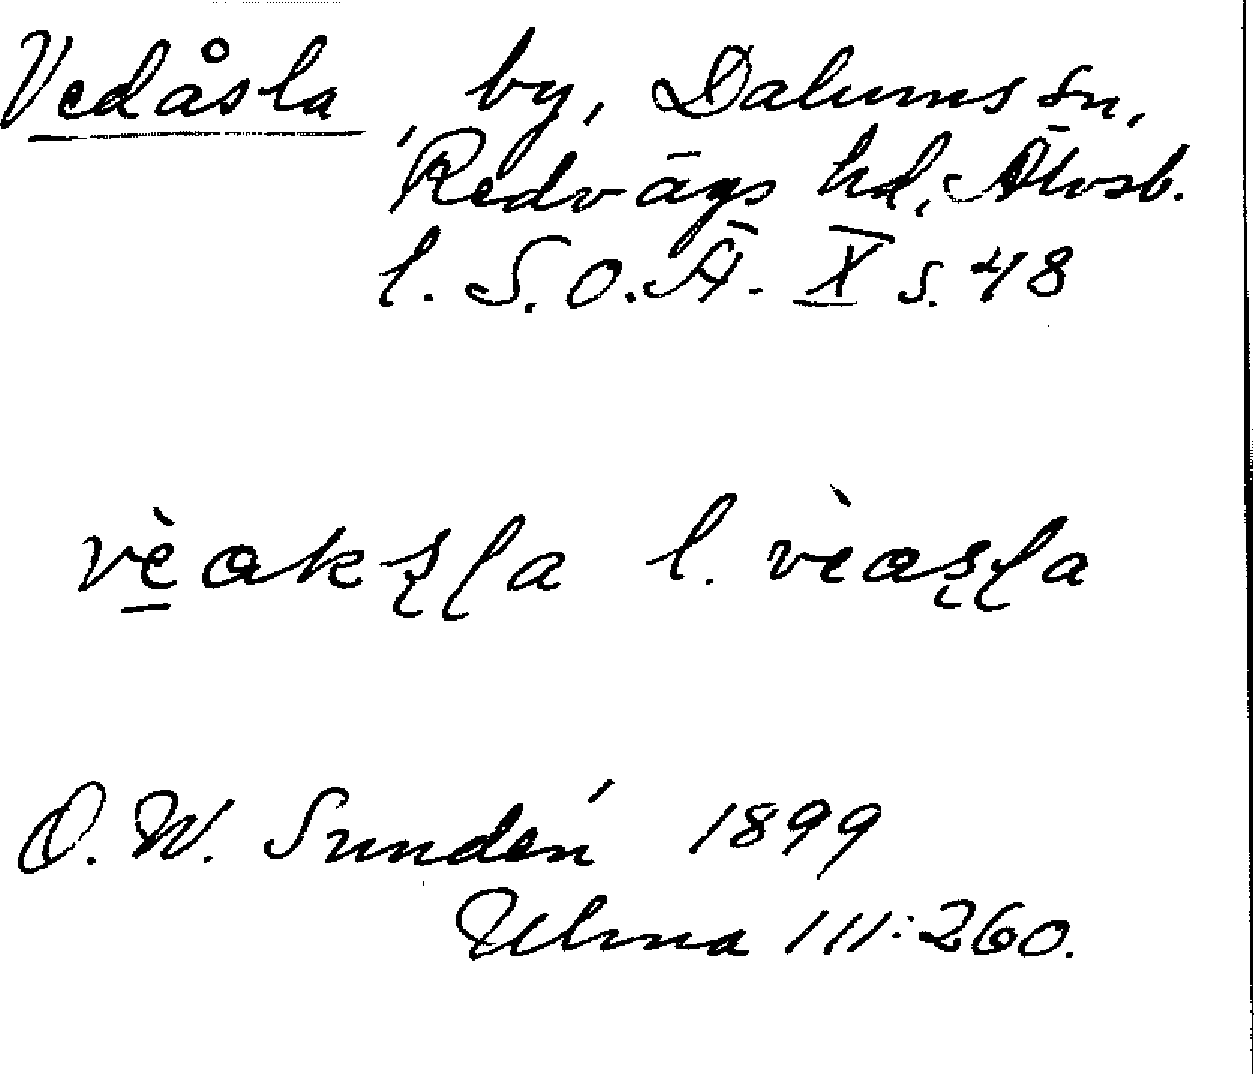 Vedåsla, by, Dalums sn,
Redvägs hd, Älvsb.
l. S.O.Ä. X s. 48
vèakʂɭa l. vèaʂɭa
O. W. Sundén 1899
Ulma 111:260.